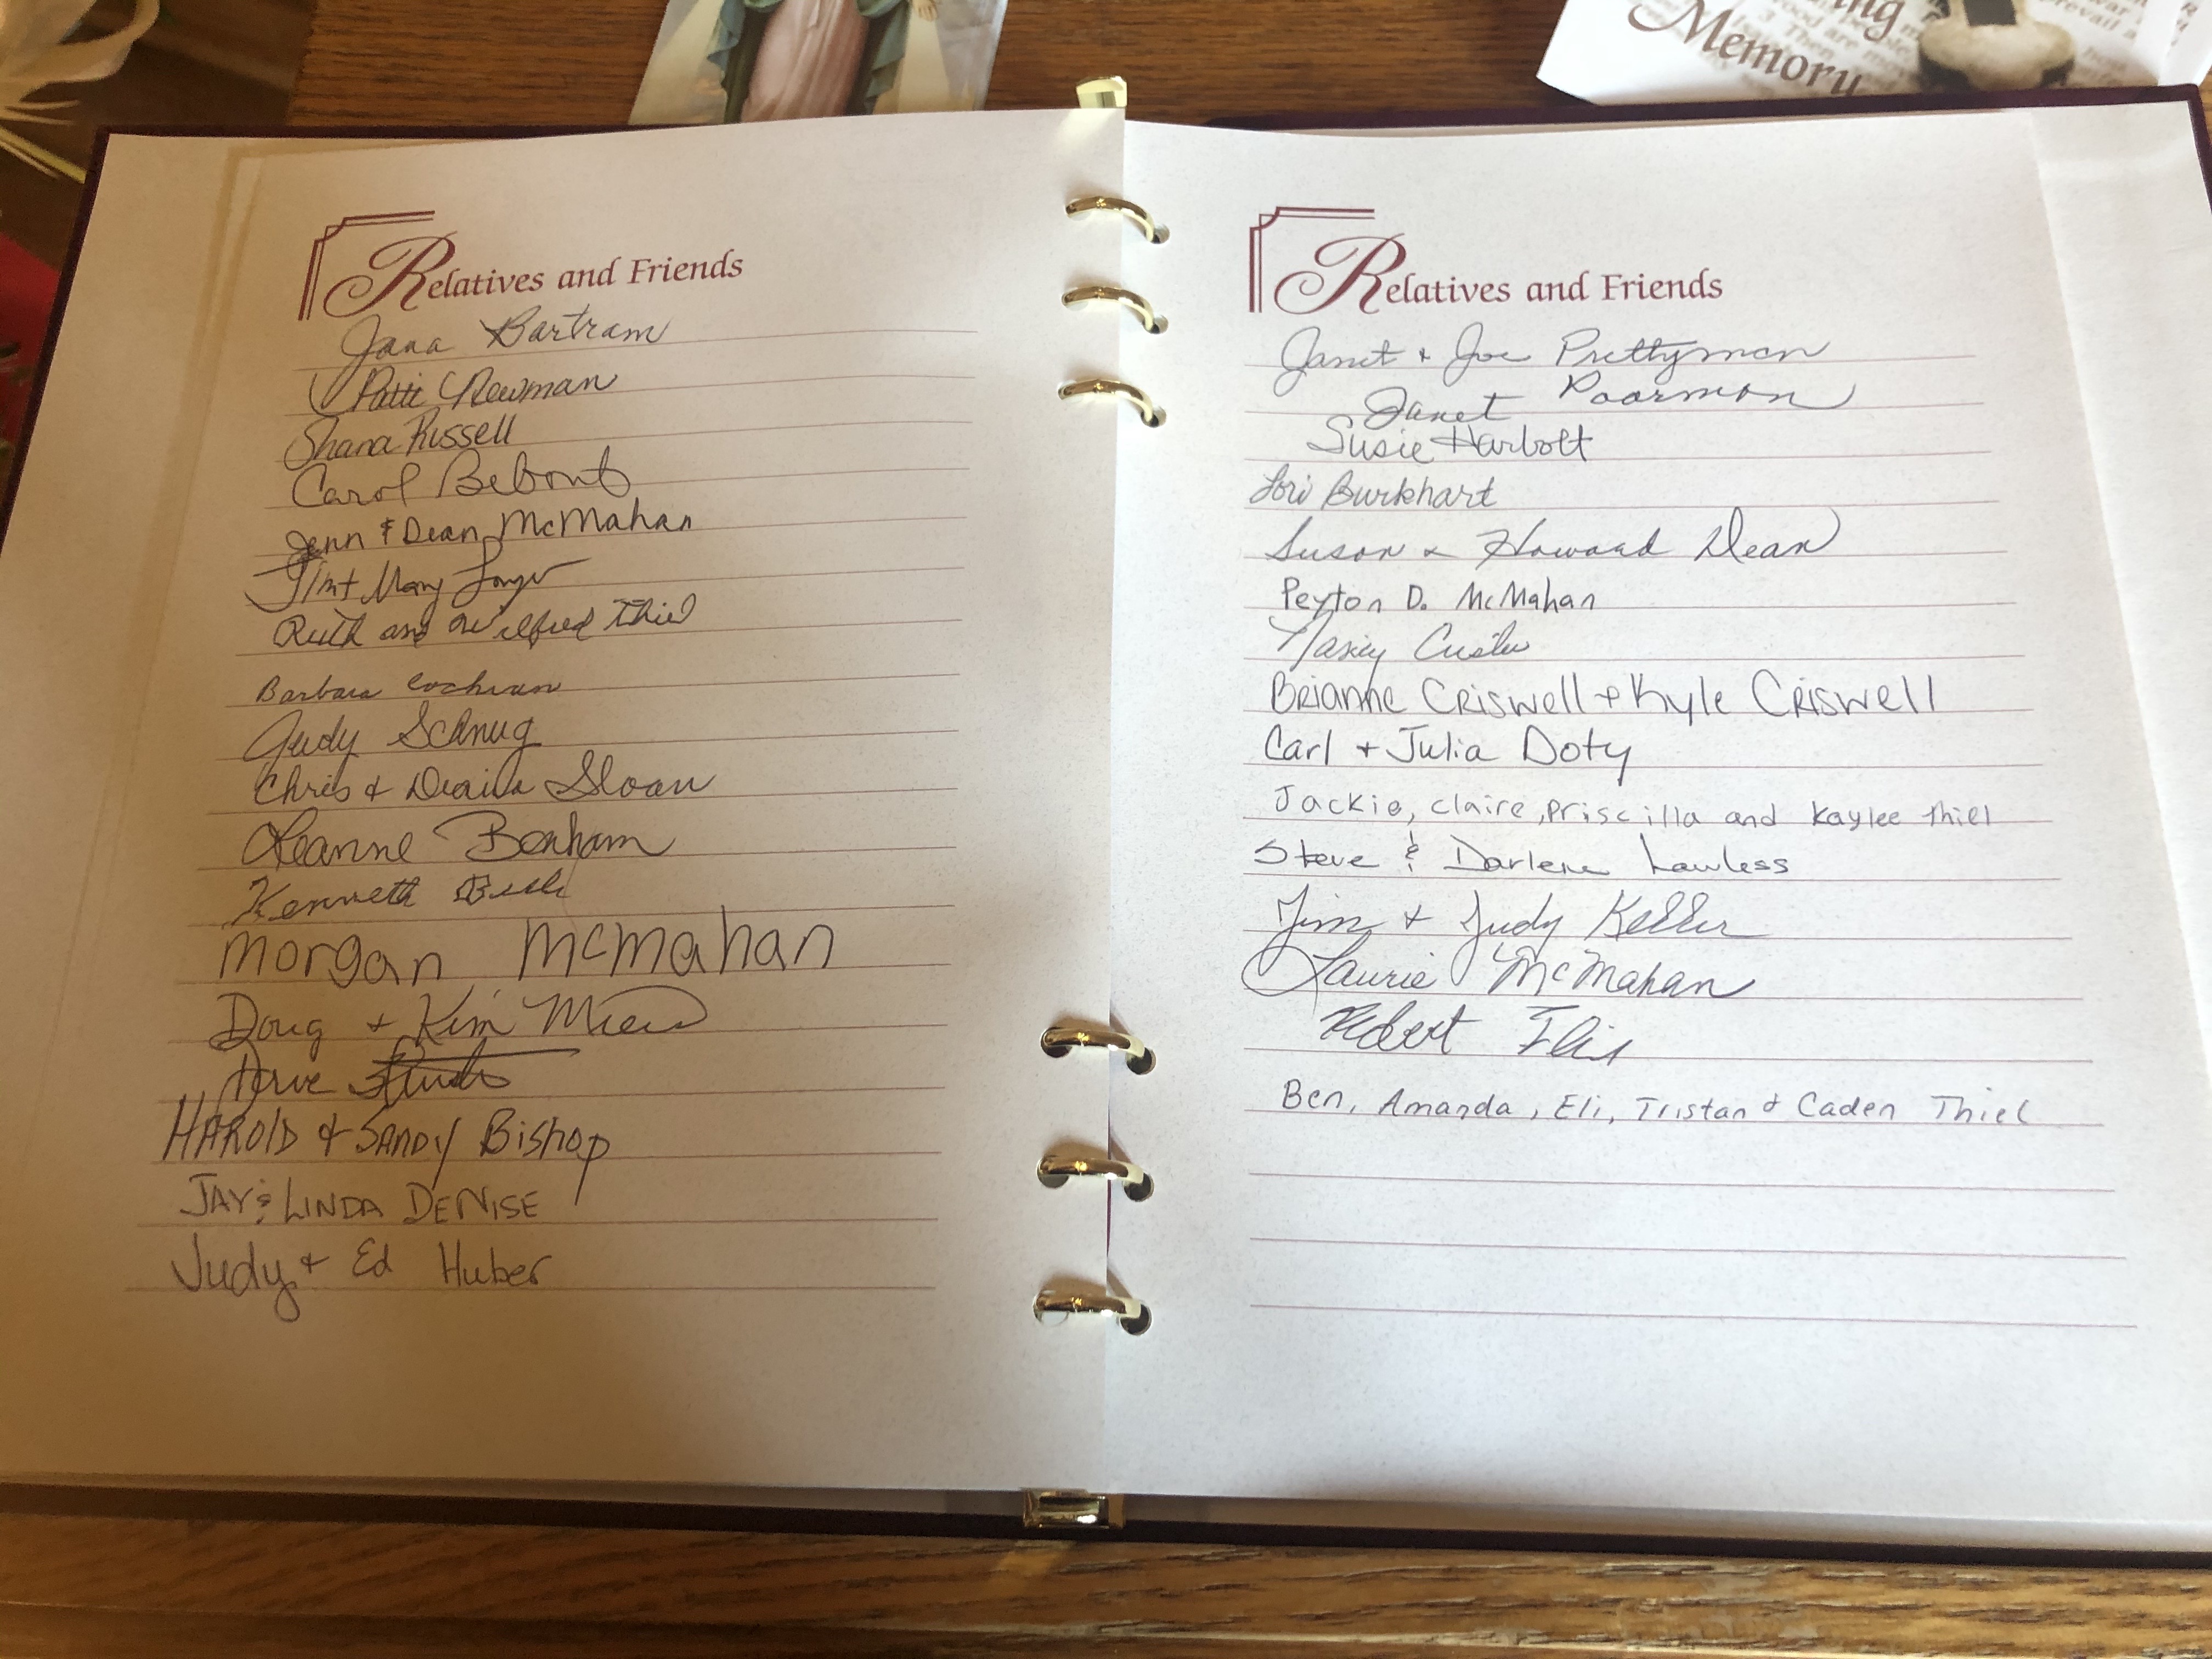 Memory
Relatives and Friends
Jana Bartram
Patti Newman
Shana Russell
Carol Bebout
Jenn & Dean McMahan
Mary
Ruth and Wilfred Thiel
Barbara Cochran
Judy Schnug
Chris & Sloan
Leanne Benham
Kenneth
Morgan McMahan
Doug + Kim
Dave
HAROLD & SANDY Bishop
JAY & LINDA DENISE
Judy + Ed Huber
Relatives and Friends
Janet + Joe Prettyman
Janet Poorman
Susie Harbolt
Lori Burkhart
Susan & Howard Dean
Peyton D. McMahan
Nancy Custer
Brianne Criswell + Kyle Criswell
Carl + Julia Doty
Jackie, Claire, Priscilla and Kaylee Thiel
Steve & Darlene Lawless
Jim + Judy Keller
Laurie McMahan
Robert
Ben, Amanda, Eli, Tristan & Caden Thiel